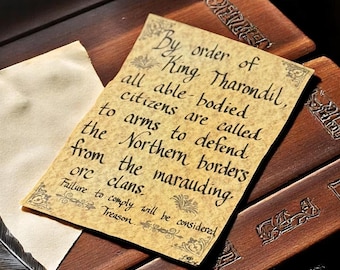 By order of
King Tharondil,
all able-bodied
citizens are called
to arms to defend
the Northern borders
from the marauding
orc clans
Failure to comply will be considered
Treason.